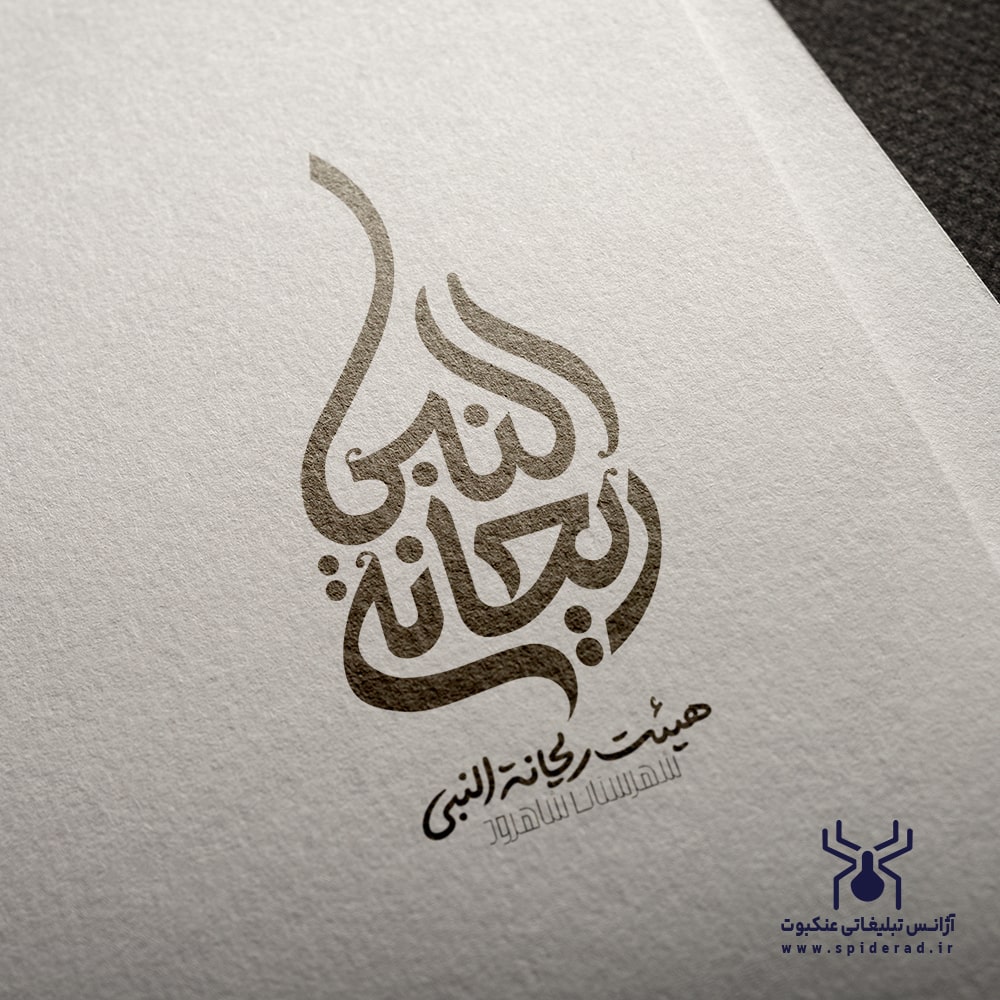 ریحانة
النبی
هیئت ریحانة النبی
شهرستان شاهرود
آژانس تبلیغاتی عنکبوت
www.spiderad.ir